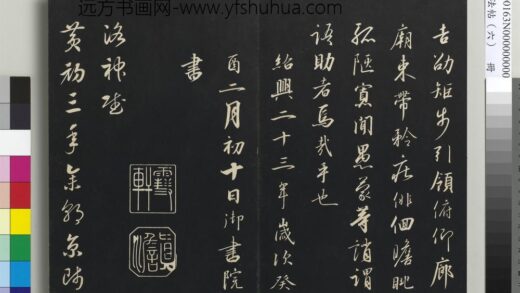 远方书画网- www.yfshuhua.com
吉劭矩步引領俯仰廊
廟束帶矜莊俳佪瞻眺
孤陋寡聞愚蒙等誚謂
語助者焉哉乎也
紹興二十三年歲次癸
酉二月初十日御書院
書
洛神賦
黃初三年余朝京師
0163N000000000
法帖（六） 冊